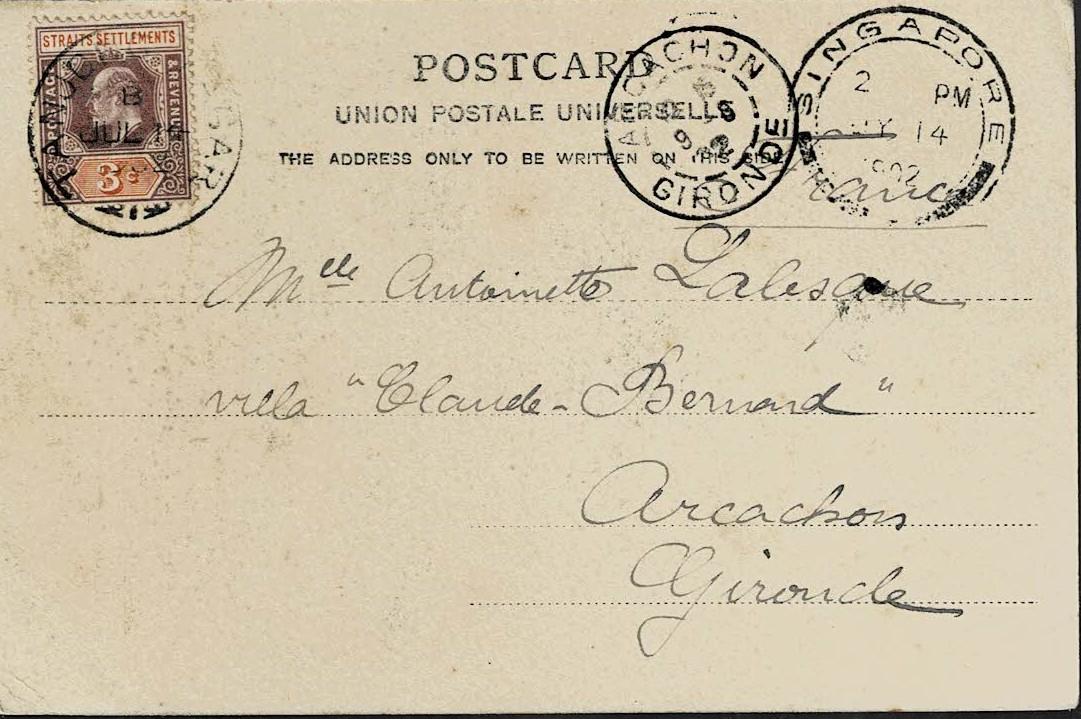 STRAITS SETTLEMENTS
POSTAGE & REVENUE
3c
B
JUL 14
POSTCARD
UNION POSTALE UNIVERSELLE
THE ADDRESS ONLY TO BE WRITTEN ON THIS SIDE
ARCACHON
GIRONDE
SINGAPORE
2 PM
JY 14
1902
France
Mlle Antoinette Lalesque
villa "Claude-Bernard"
Arcachon
Gironde